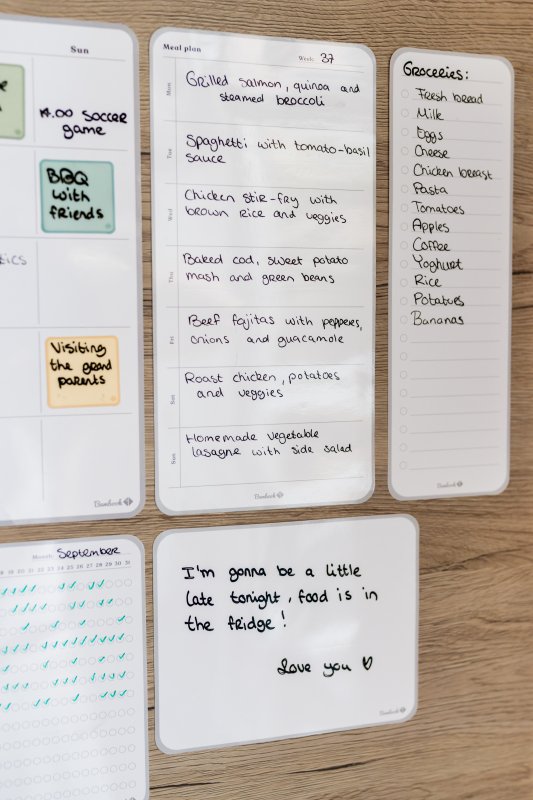 Sun
14.00 soccer
game
BBQ
with
friends
tics
Visiting
the grand
parents
Bambook
Meal plan
Week: 37
Mon
Grilled salmon, quinoa and
steamed broccoli
Tue
Spaghetti with tomato-basil
sauce
Wed
Chicken stir-fry with
brown rice and veggies
Thu
Baked cod, sweet potato
mash and green beans
Fri
Beef fajitas with pepperes,
onions and guacamole
Sat
Roast chicken, potatoes
and veggies
Sun
Homemade vegetable
lasagne with side salad
Bambook
Groceries:
Fresh bread
Milk
Eggs
Cheese
Chicken breast
Pasta
Tomatoes
Apples
Coffee
Yoghurt
Rice
Potatoes
Bananas
Bambook
Month: September
19 20 21 22 23 24 25 26 27 28 29 30 31
I'm gonna be a little
late tonight, food is in
the fridge!
Love you
Bambook